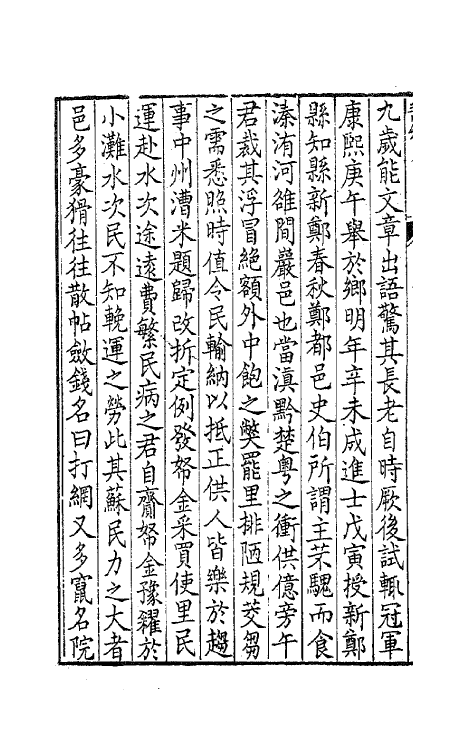 九歲能文章出語驚其長老自時厥後試輒冠軍
康熙庚午舉於鄉明年辛未成進士戊寅授新鄭
縣知縣新鄭春秋鄭都邑史伯所謂主芣騩而食
溱洧河雒間巖邑也當滇黔楚粵之衝供億旁午
君裁其浮冒絶額外中飽之獘罷里排陋規茭芻
之需悉照時值令民輸納以抵正供人皆樂於趨
事中州漕米題歸改折定例發帑金采買使里民
運赴水次途遠費繁民病之君自齎帑金豫糴於
小灘水次民不知輓運之勞此其蘇民力之大者
邑多豪猾往往散帖斂錢名曰打網又多竄名院